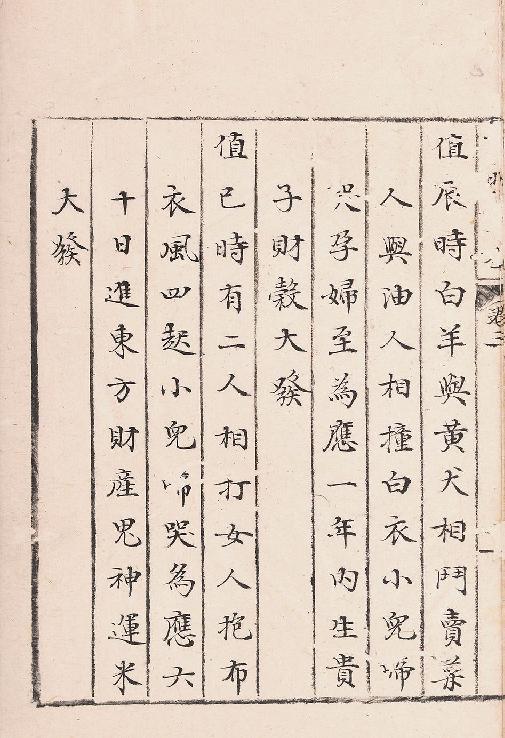 卷三
一
值辰時白羊與黃犬相鬥賣菜
人與油人相撞白衣小兒啼
哭孕婦至為應一年內生貴
子財穀大發
值巳時有二人相打女人抱布
衣風四起小兒啼哭為應六
十日進東方財產鬼神運米
大發